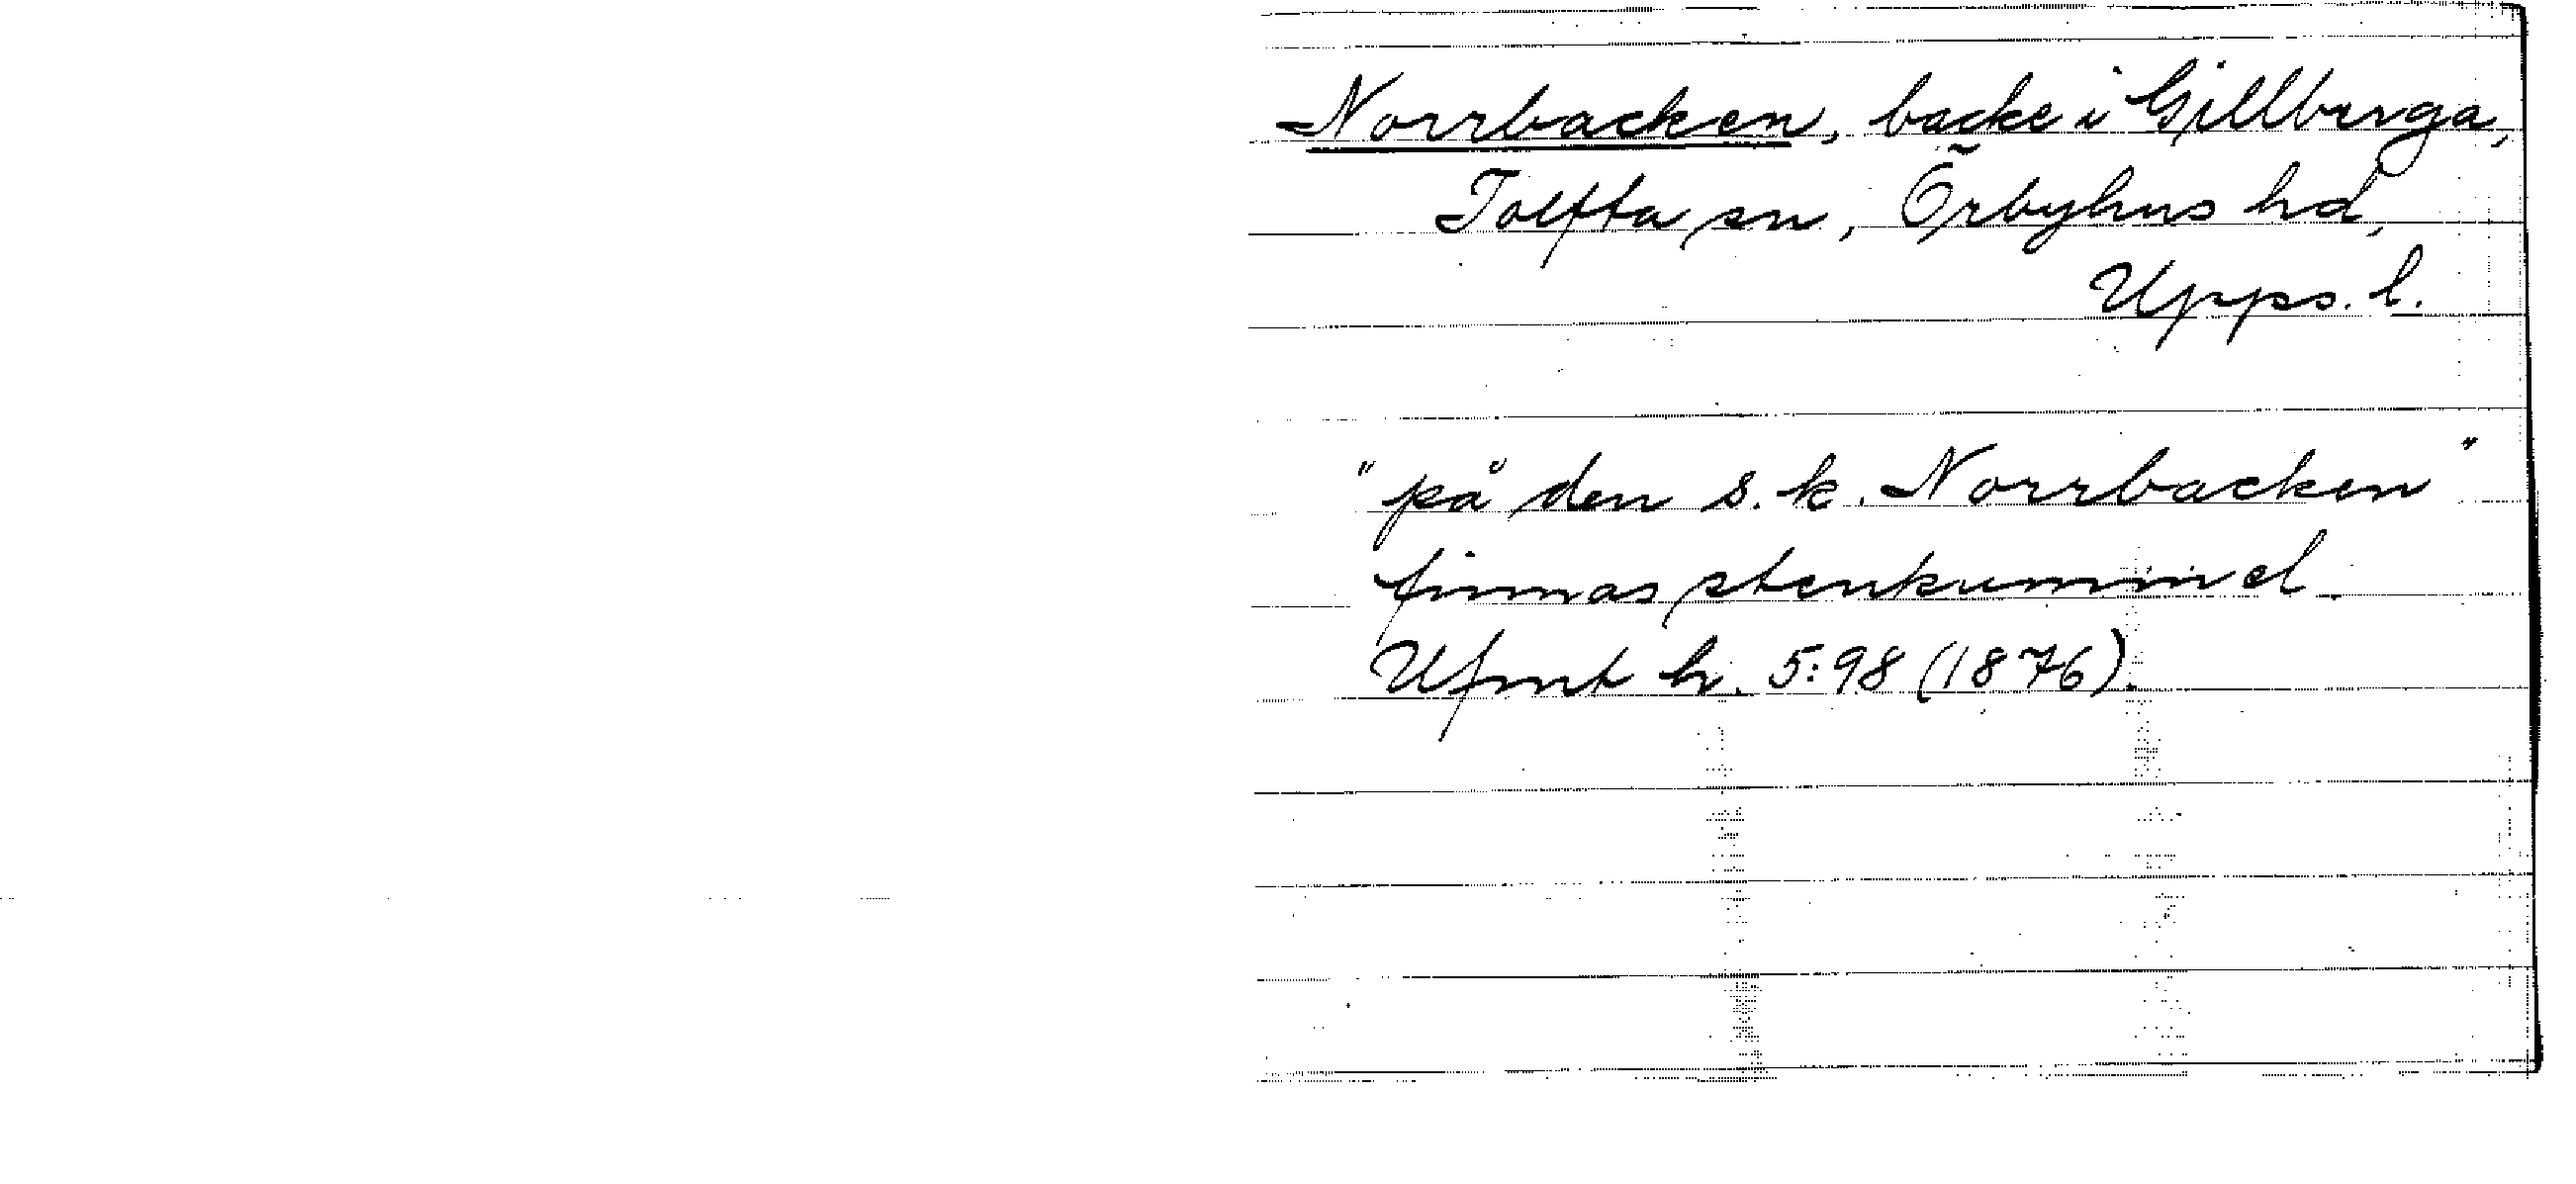 Norrbacken, backe i Gillberga,
Tolfta sn, Örbyhus hd,
Upps. l.
"på den s.k. Norrbacken"
finnas stenkummel.
Ufmt h. 5:98 (1876).